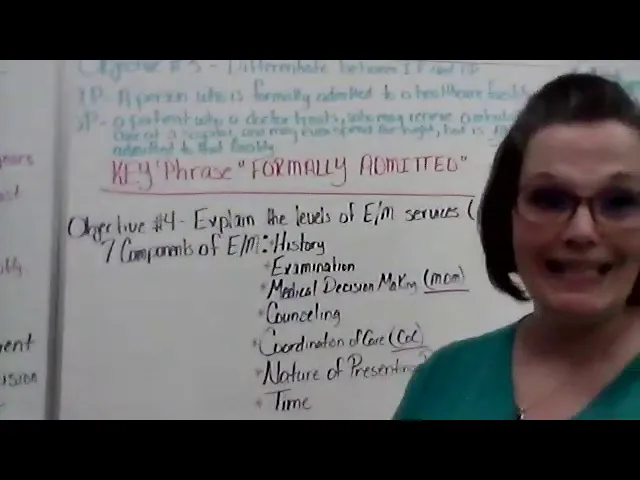 Objective # 3 - Differentiate between IP and OP
IP - A person who is formally admitted to a healthcare facility
OP - a patient who a doctor treats, who may receive
care at a hospital, and may even spend the night, but is
admitted to that facility
KEY "Phrase" "FORMALLY ADMITTED"
Objective #4 - Explain the levels of E/M services (
7 Components of E/M: * History
* Examination
* Medical Decision Making (MDM)
* Counceling
* Coordination of Care (CoC)
* Nature of Presenting
* Time
ent
ision